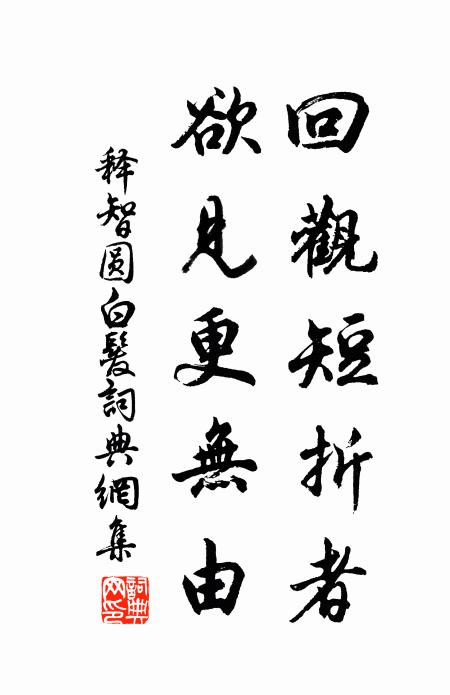 回觀短折者
欲見更無由
释智圆白髮詞典網集
詞典网印